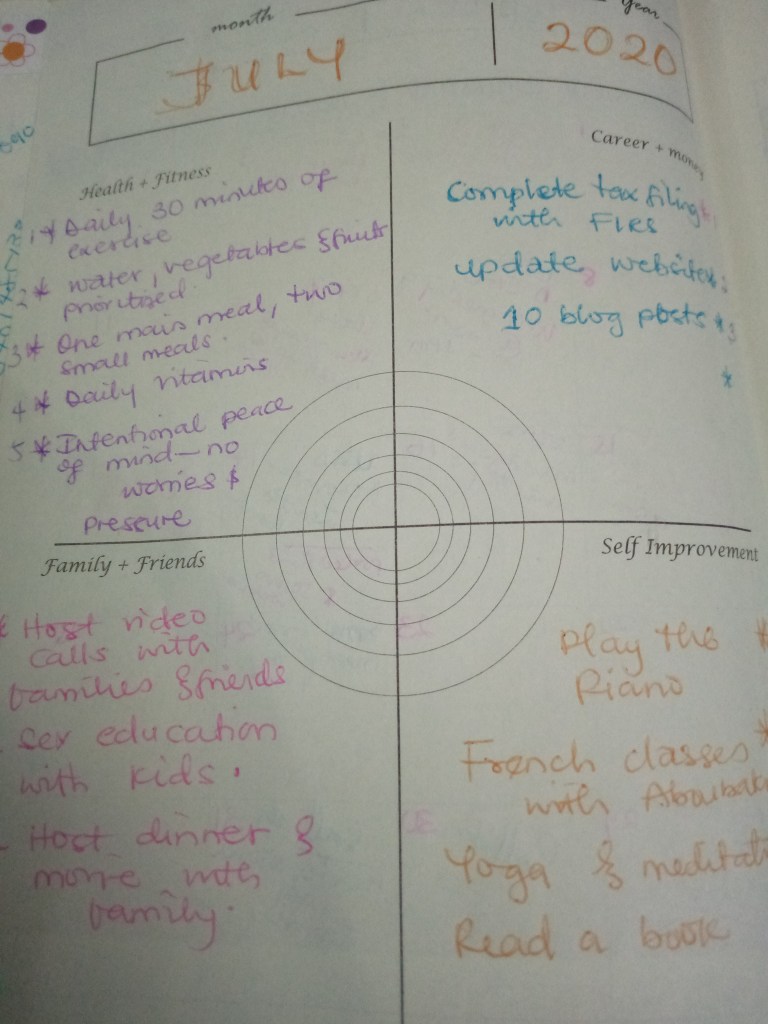 month
year
JULY
2020
Health + Fitness
1 * Daily 30 minutes of
exercise
2 * water, vegetables & fruits
prioritized
3 * One main meal, two
small meals.
4 * Daily vitamins
5 * Intentional peace
of mind — no
worries &
pressure
Career + money
Complete tax filing
with FIRS
update website *
10 blog posts *
*
Family + Friends
* Host video
calls with
families & friends
- Sex education
with kids.
- Host dinner &
movie with
family.
Self Improvement
Play the *
Piano
French classes *
with Aboubak
Yoga & meditati
Read a book